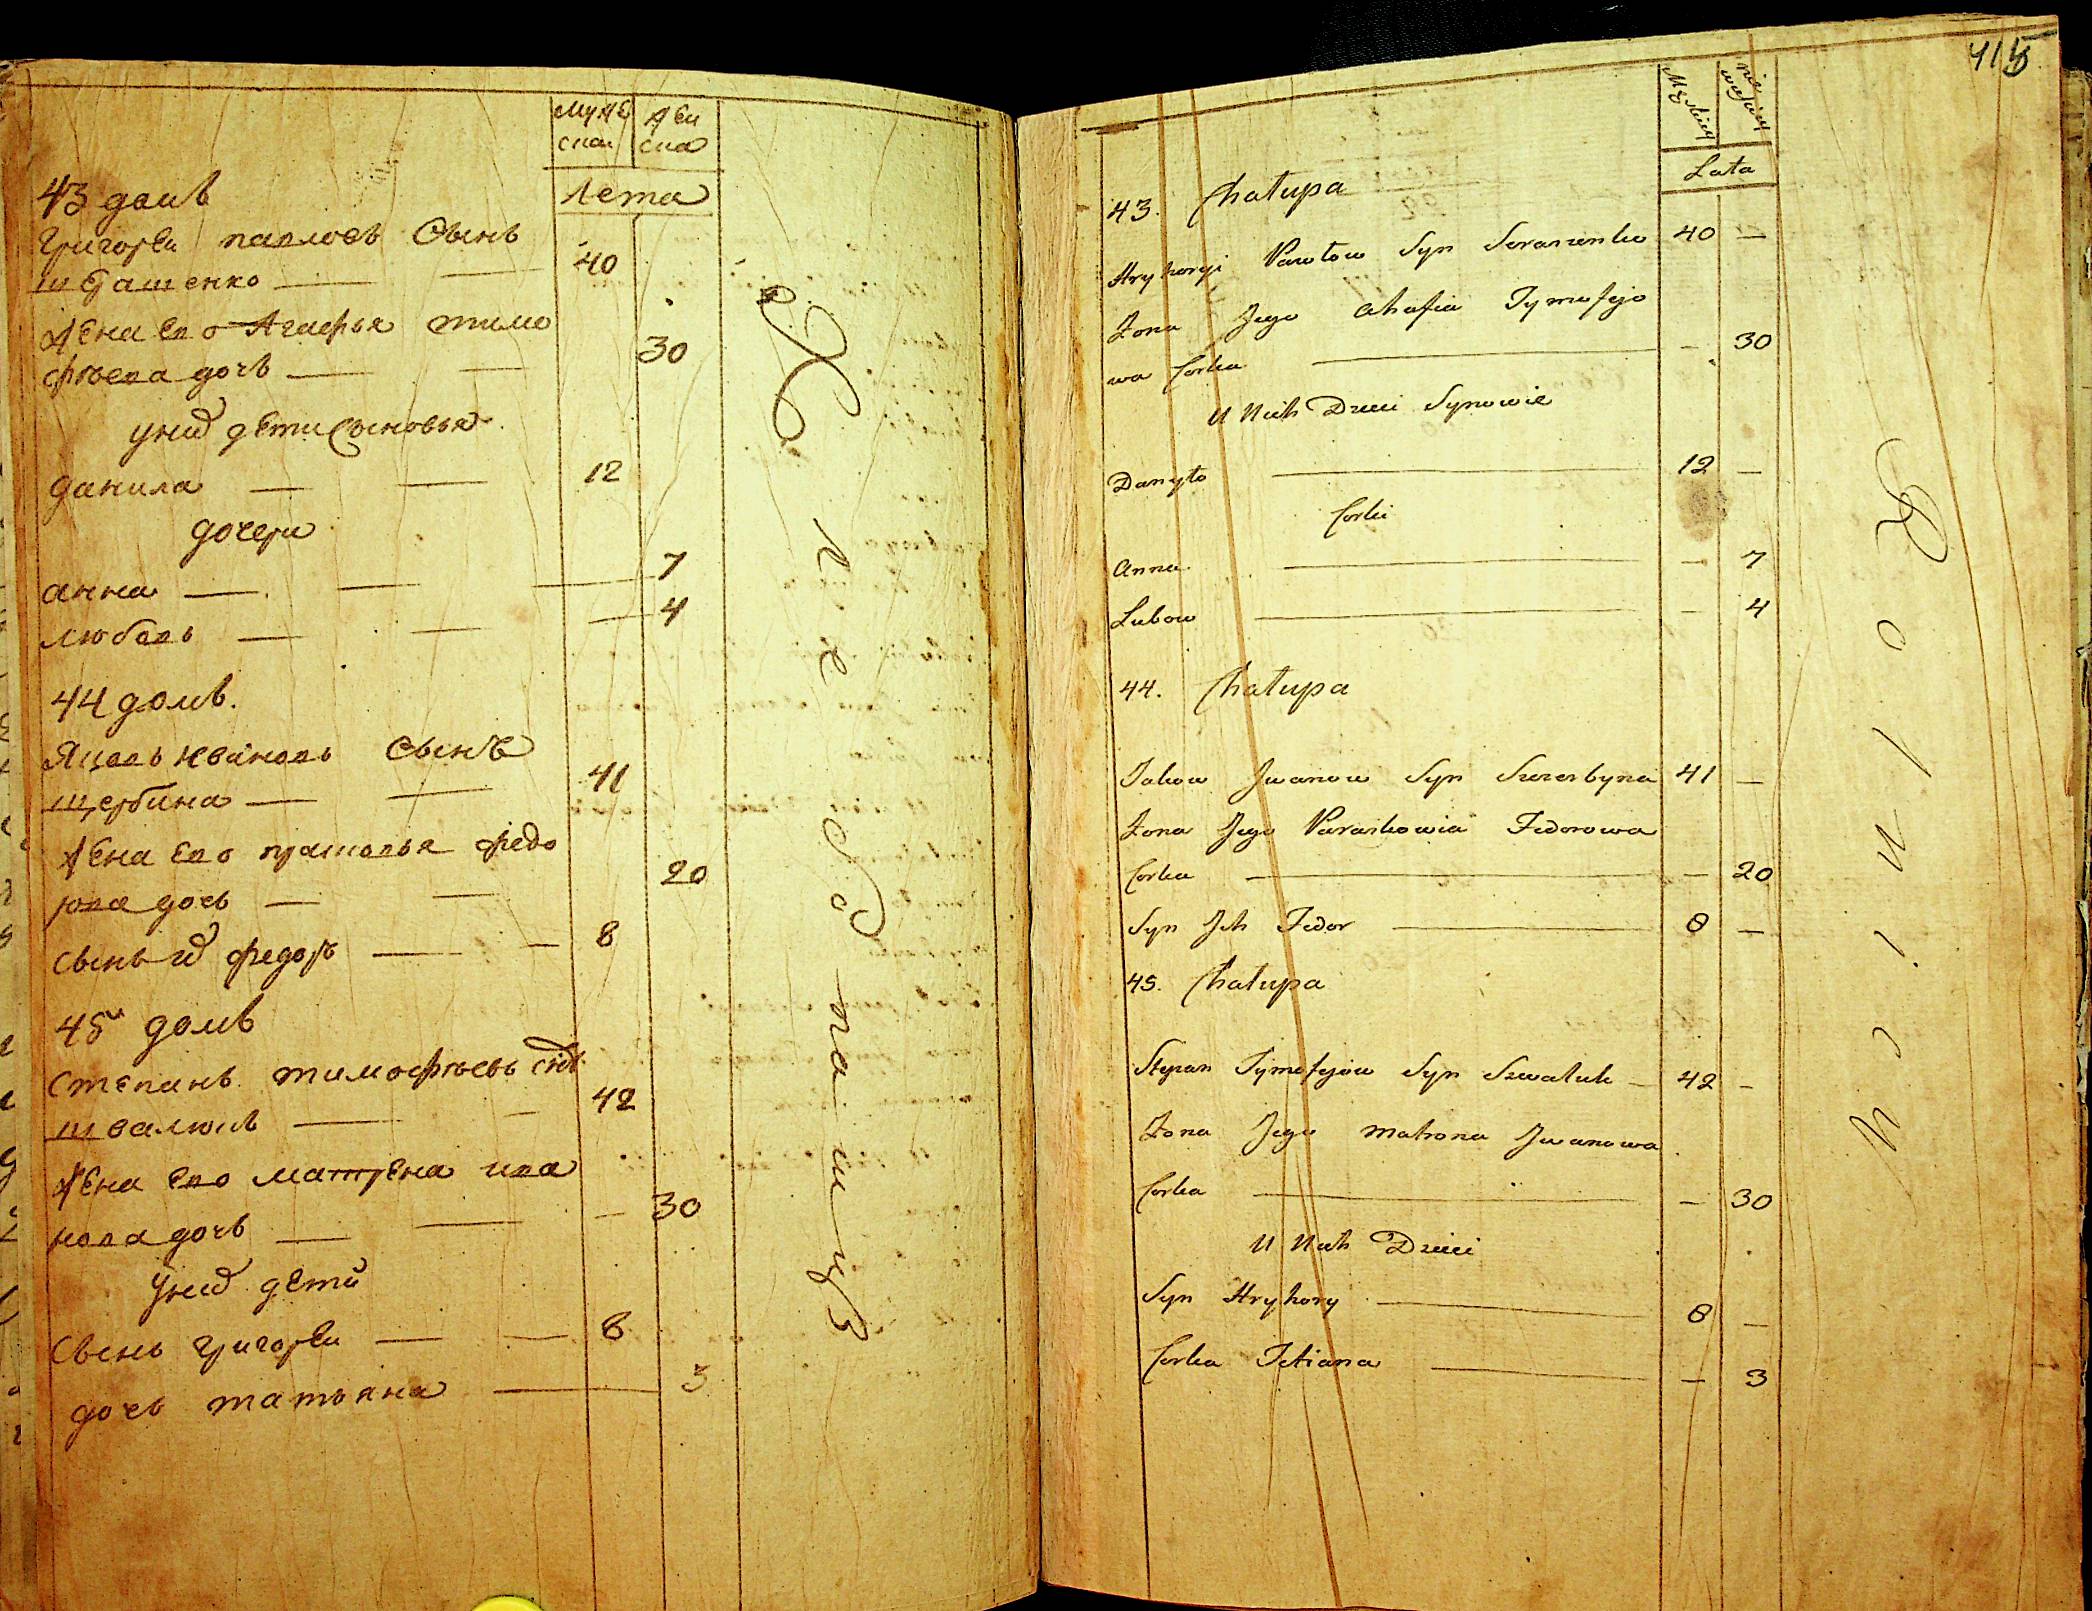 муже
скаи
жен
ска
Лета
43 домъ
Григореи павловъ Сынъ
шерашенко
40
жена ево Агафья тимо
фѣева дочь
30
у них дети Сыновья
данила
12
дочери
анна
7
любовь
4
44 домъ.
Яковъ Ивановъ Сынъ
щербина
41
жена ево прасковья федо
рова дочь
20
Сынъ их федоръ
8
45 домъ
Степанъ тимофѣевъ Снъ
швалюкъ
42
жена ево матрена ива
нова дочь
30
у них дети
Сынъ григореи
8
дочь татьяна
3
Хлебопашцъ
415
Męskiey
niewiesciey
Lata
43. Chałupa
Hryhoryi Pawłow Syn Szraszenko 40 —
Zona Jego Ahafia Tymofyjo
wa Corka — 30
U Nich Dzieci Synowie
Danyło 12 —
Corki
Anna — 7
Lubow — 4
44. Chałupa
Jakow Jwanow Syn Szczerbyna 41 —
Zona Jego Paraskowia Fedorowa
Corka — 20
Syn Jch Fedor 8 —
45. Chałupa
Stepan Tymofyjow Syn Szwaluk 42 —
Zona Jego Matrona Jwanowa
Corka — 30
U Nich Dzieci
Syn Hryhory 8 —
Corka Tetiana — 3
Rolnicy